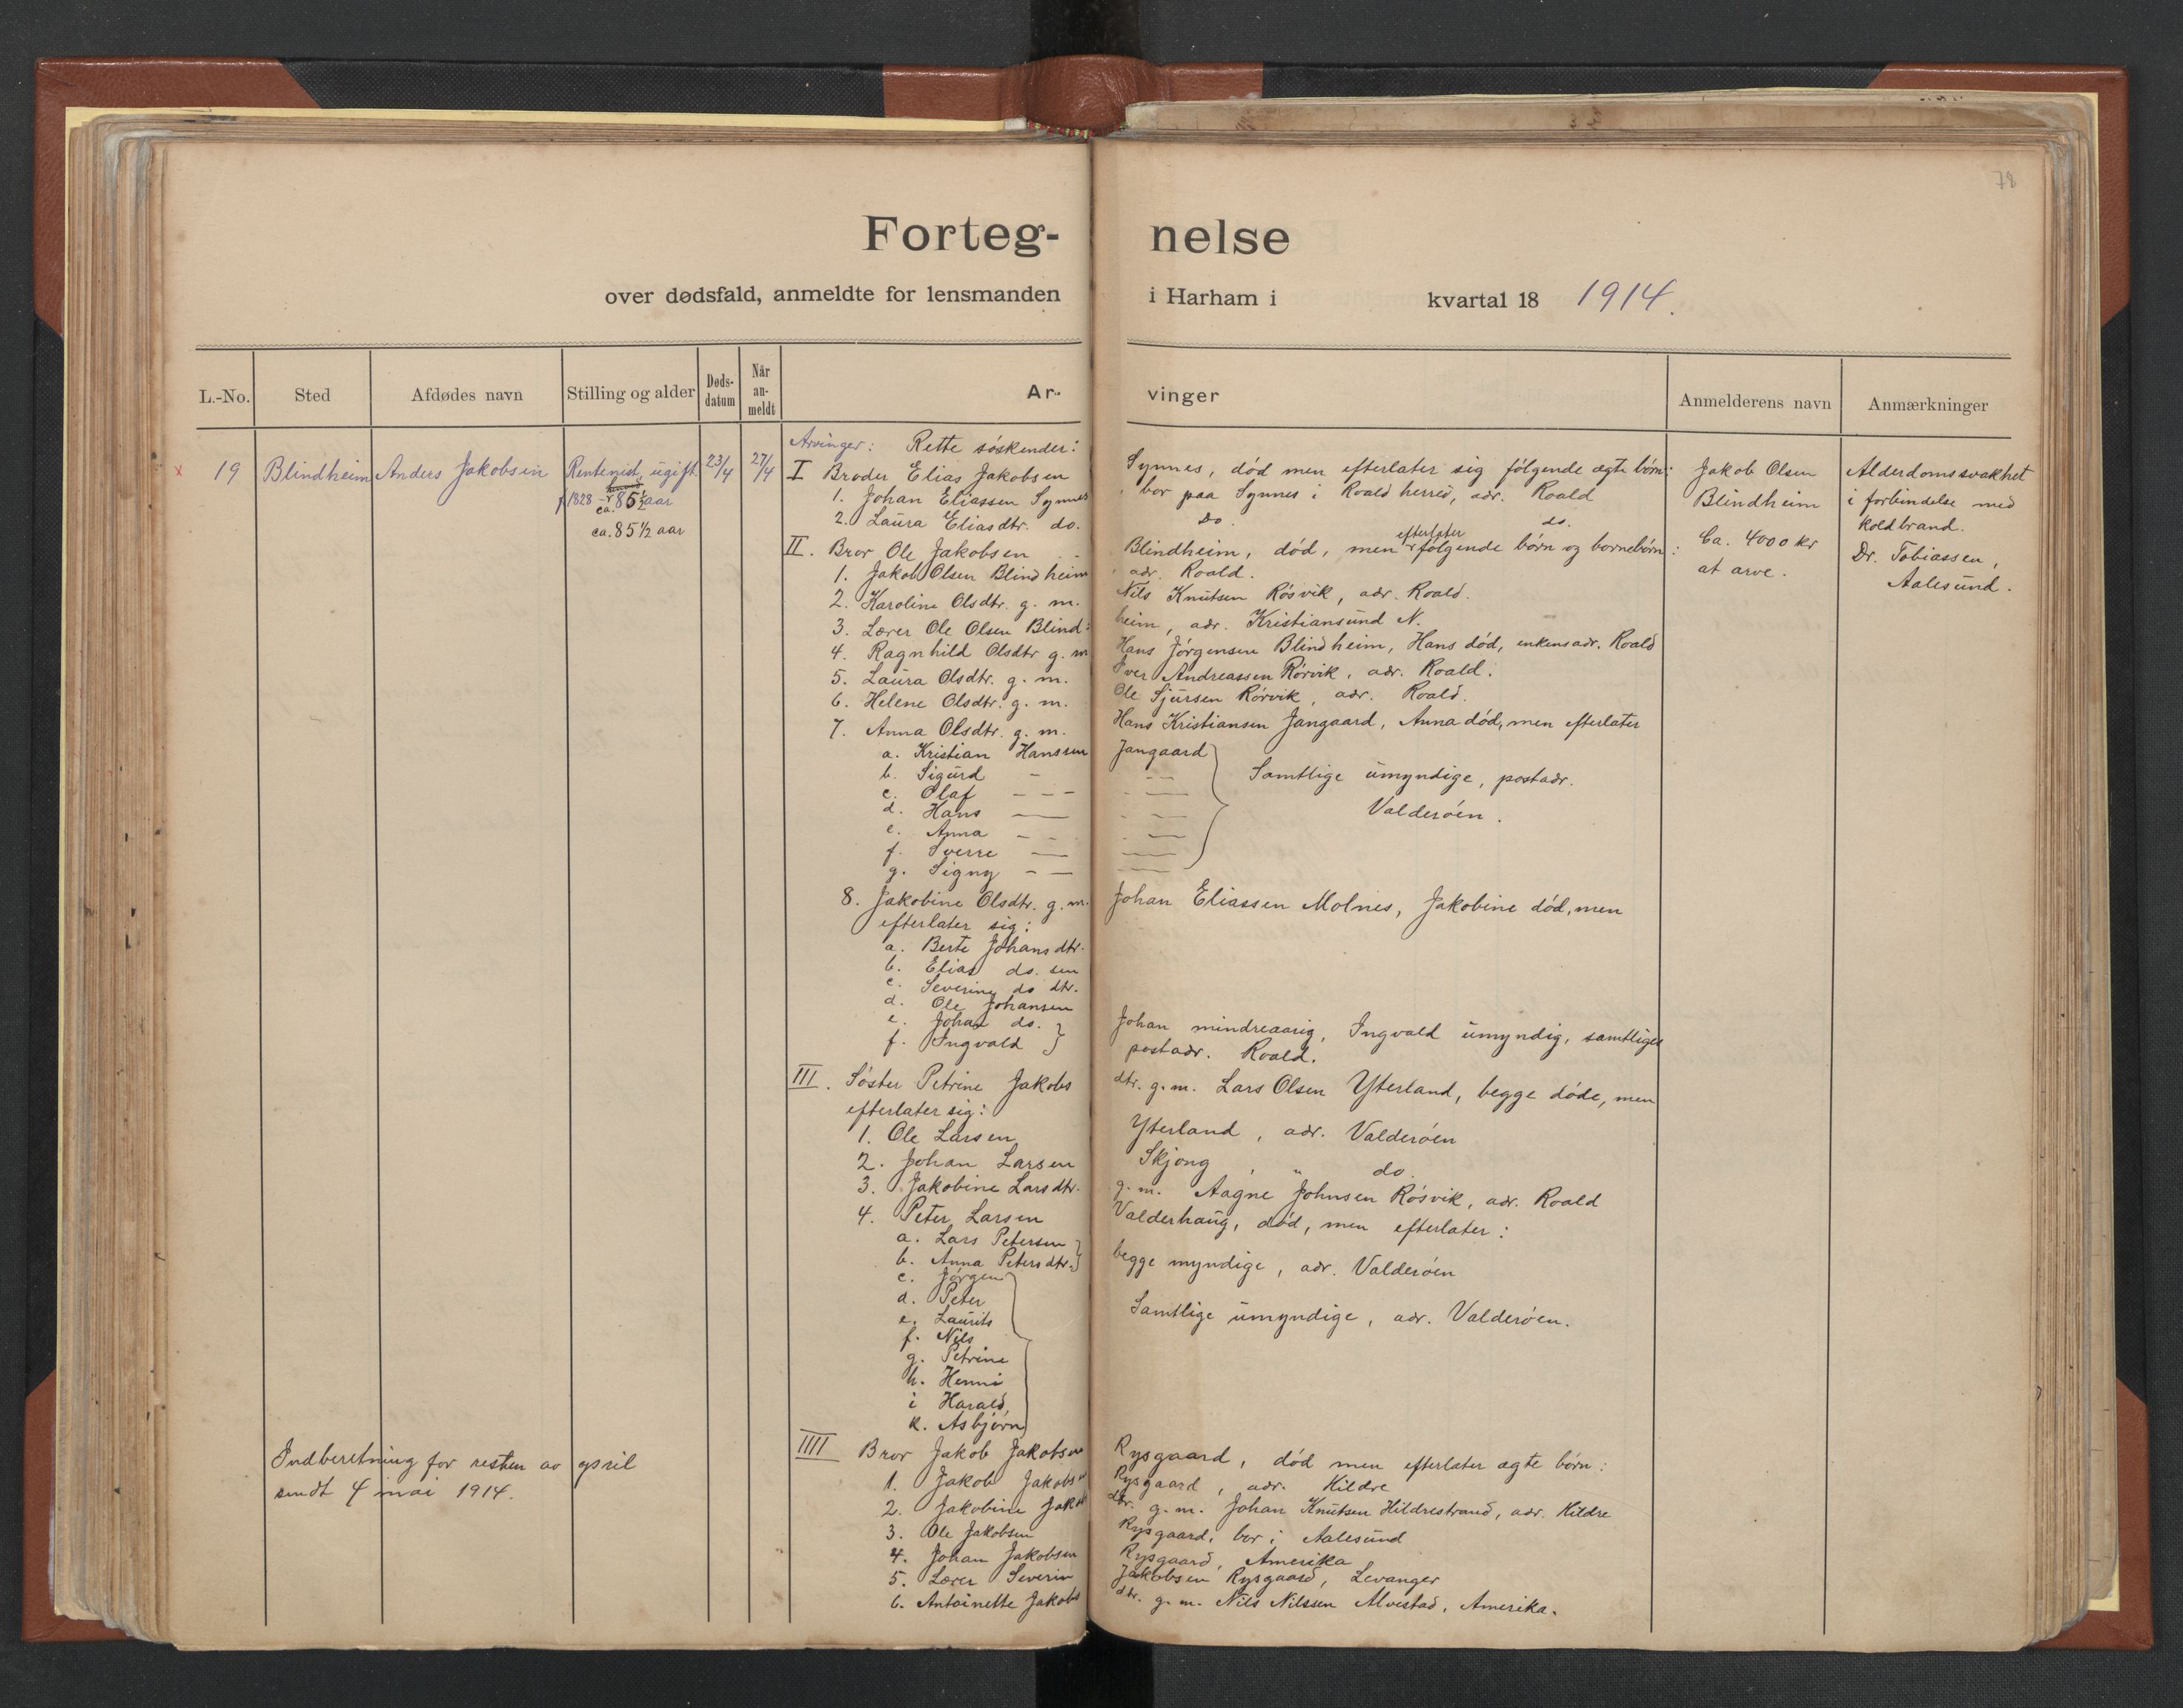 78
Forteg- nelse
over dødsfald, anmeldte for lensmanden i Harham i kvartal 18 1914.
L.-No. Sted Afdødes navn Stilling og alder Døds-datum Når an-meldt Ar- vinger Anmelderens navn Anmærkninger
x 19 Blindheim Anders Jakobsen Rentenist, ugift 23/4 27/4
f. 1828 - ca. 85½ aar
ca. 85 ½ aar
Arvinger: Rette søskender:
I Broder Elias Jakobsen Synnes, død men efterlater sig følgende ægte børn:
1. Johan Eliassen Synnes bor paa Synnes i Roald herred, adr. Roald
2. Laura Eliasdtr. do. Do. do.
II. Bror Ole Jakobsen Blindheim, død, men efterlater følgende børn og bornebørn:
1. Jakob Olsen Blindheim adr. Roald.
2. Karoline Olsdtr. g. m. Nils Knutsen Røsvik, adr. Roald.
3. Lærer Ole Olsen Blind- heim, adr. Kristiansund N.
4. Ragnhild Olsdtr g. m Hans Jørgensen Blindheim, Hans død, enkens adr. Roald
5. Laura Olsdtr. g. m. Iver Andreassen Rørvik, adr. Roald.
6. Helene Olsdtr. g. m. Ole Sjursen Rørvik, adr. Roald.
7. Anna Olsdtr. g. m. Hans Kristiansen Jangaard, Anna død, men efterlater
a. Kristian Hanssen Jangaard
b. Sigurd - - - Samtlige umyndige, postadr.
c. Olaf - - - - —
d. Hans — - — Valderøen.
e. Anna - - - —
f. Sverre — —
g. Signy - - —
8. Jakobine Olsdtr. g. m. Johan Eliassen Molnes, Jakobine død, men
efterlater sig:
a. Berte Johansdtr.
b. Elias do. sen
c. Severine do dtr.
d. Ole Johansen
e. Johan do. Johan mindreaarig, Ingvald umyndig, samtliges
f. Ingvald postadr. Roald.
III. Søster Petrine Jakobs dtr. g. m. Lars Olsen Ytterland, begge døde, men
efterlater sig:
1. Ole Larsen Ytterland, adr. Valderøen
2. Johan Larsen Skjong, " do.
3. Jakobine Larsdtr. g. m. Aagne Johnsen Røsvik, adr. Roald
4. Peter Larsen Valderhaug, død, men efterlater:
a. Lars Petersen
b. Anna Petersdtr. begge myndige, adr. Valderøen
c. Jørgen
d. Peter
e. Laurits Samtlige umyndige, adr. Valderøen.
f. Nils
g. Petrine
h. Henni
i Harald,
k. Asbjørn
IIII Bror Jakob Jakobsen Rysgaard, død men efterlater ægte børn:
1. Jakob Jakobsen Rysgaard, adr. Hildre
2. Jakobine Jakobs dtr. g. m. Johan Knutsen Hildrestrand, adr. Hildre
3. Ole Jakobsen Rysgaard, bor i Aalesund
4. Johan Jakobsen Rysgaard, Amerika
5. Lærer Severin Jakobsen Rysgaard, Levanger
6. Antoinette Jakobs dtr. g. m. Nils Nilssen Alvestad, Amerika.
Indberetning for resten av april
sendt 4 mai 1914.
Jakob Olsen
Blindheim
Ca. 4000 kr
at arve.
Alderdomssvakhet
i forbindelse med
koldbrand.
Dr. Tobiassen,
Aalesund.